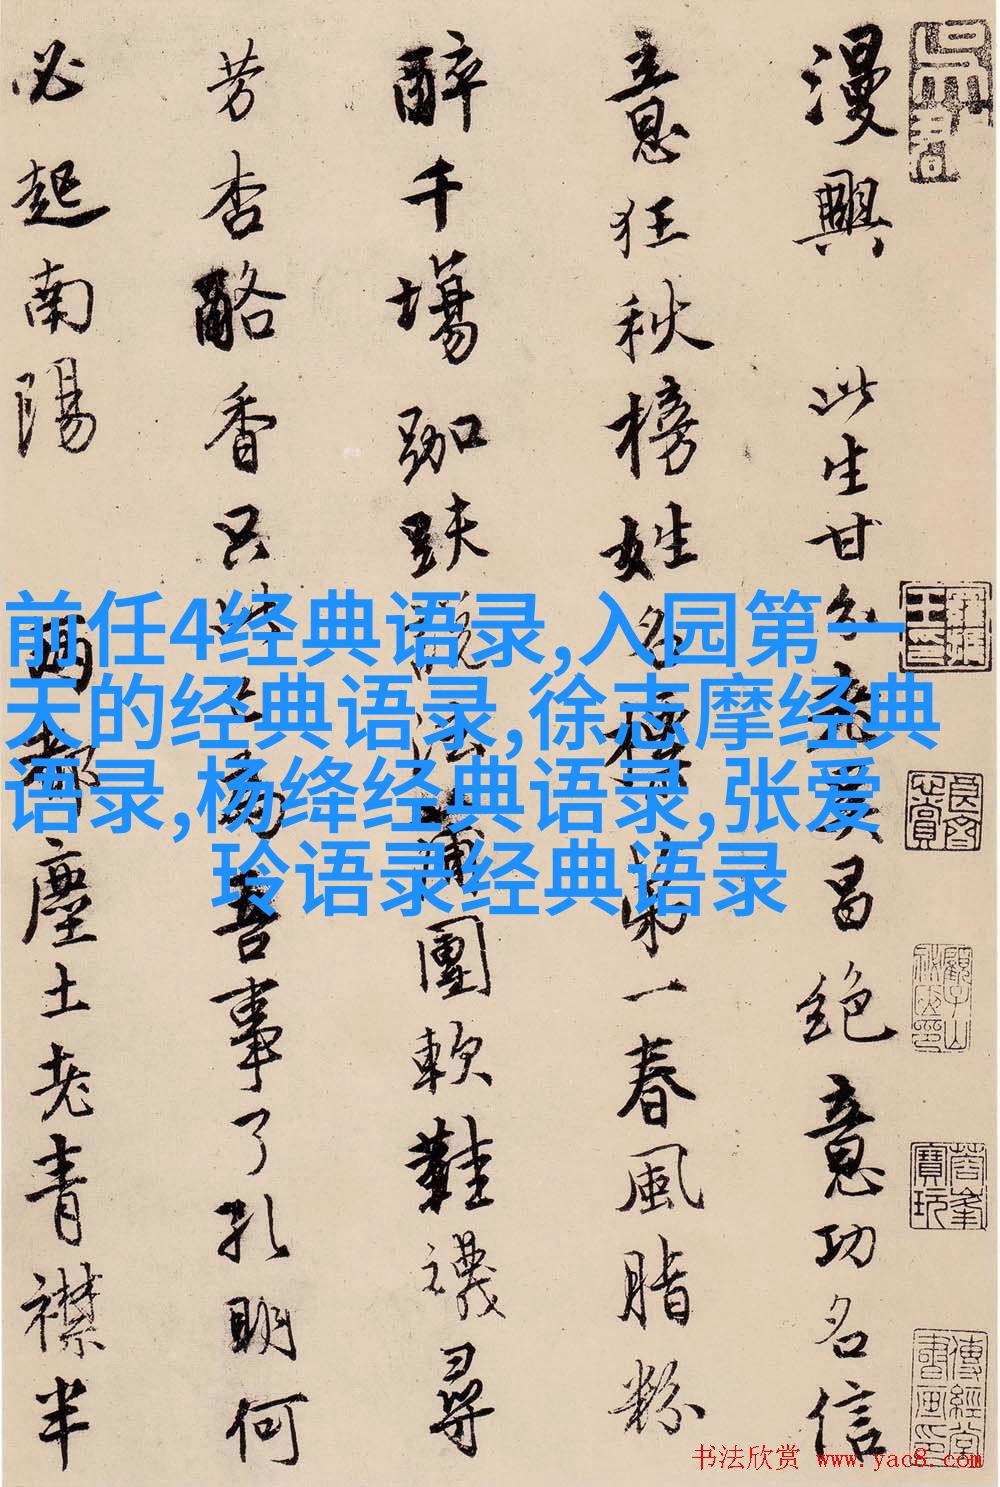 漫興 此生甘分吳昌絶意功名信
意狂秋榜姓名標第一春風脂粉
醉千場跏趺説法蒲團軟鞵襪尋
芳杏酪香只此為吾事了孔明何
必起南陽 兩都塵土老青襟半
前任4经典语录,入园第一
天的经典语录,徐志摩经典
语录,杨绛经典语录,张爱
玲语录经典语录
书法欣赏 www.yac8.com